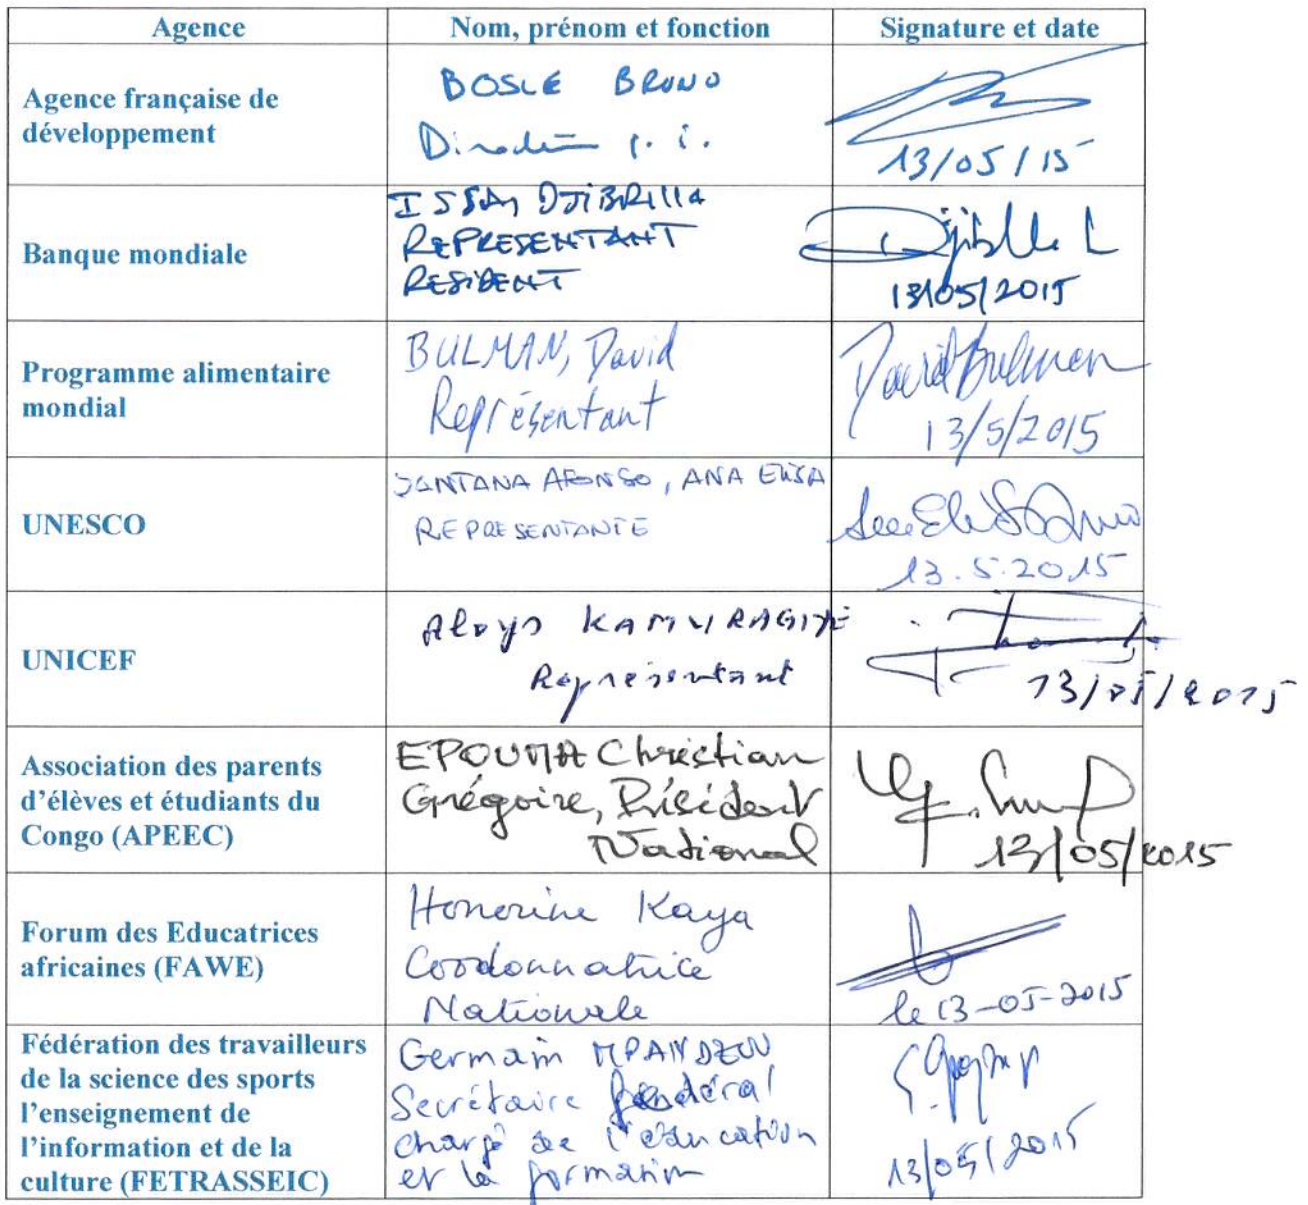 Agence Nom, prénom et fonction Signature et date
Agence française de
développement
BOSLE BRUNO
p. i.
13/05/15
Banque mondiale
ISSA, DJIBRILLA
REPRESENTANT
RESIDENT
13/05/2015
Programme alimentaire
mondial
BULMAN, David
Représentant
David Bulman
13/5/2015
UNESCO
SANTANA AFONSO, ANA ELISA
REPRESENTANTE
13.5.2015
UNICEF
Aloys KAMURAGIYE
Représentant
13/05/2015
Association des parents
d’élèves et étudiants du
Congo (APEEC)
EPOUMA Christian
Grégoire, Président
National
13/05/2015
Forum des Educatrices
africaines (FAWE)
Honorine Kaya
Coordonnatrice
Nationale
le 13-05-2015
Fédération des travailleurs
de la science des sports
l’enseignement de
l’information et de la
culture (FETRASSEIC)
Germain MPANDZOU
Secrétaire fédéral
chargé de l'éducation
et la formation
13/05/2015